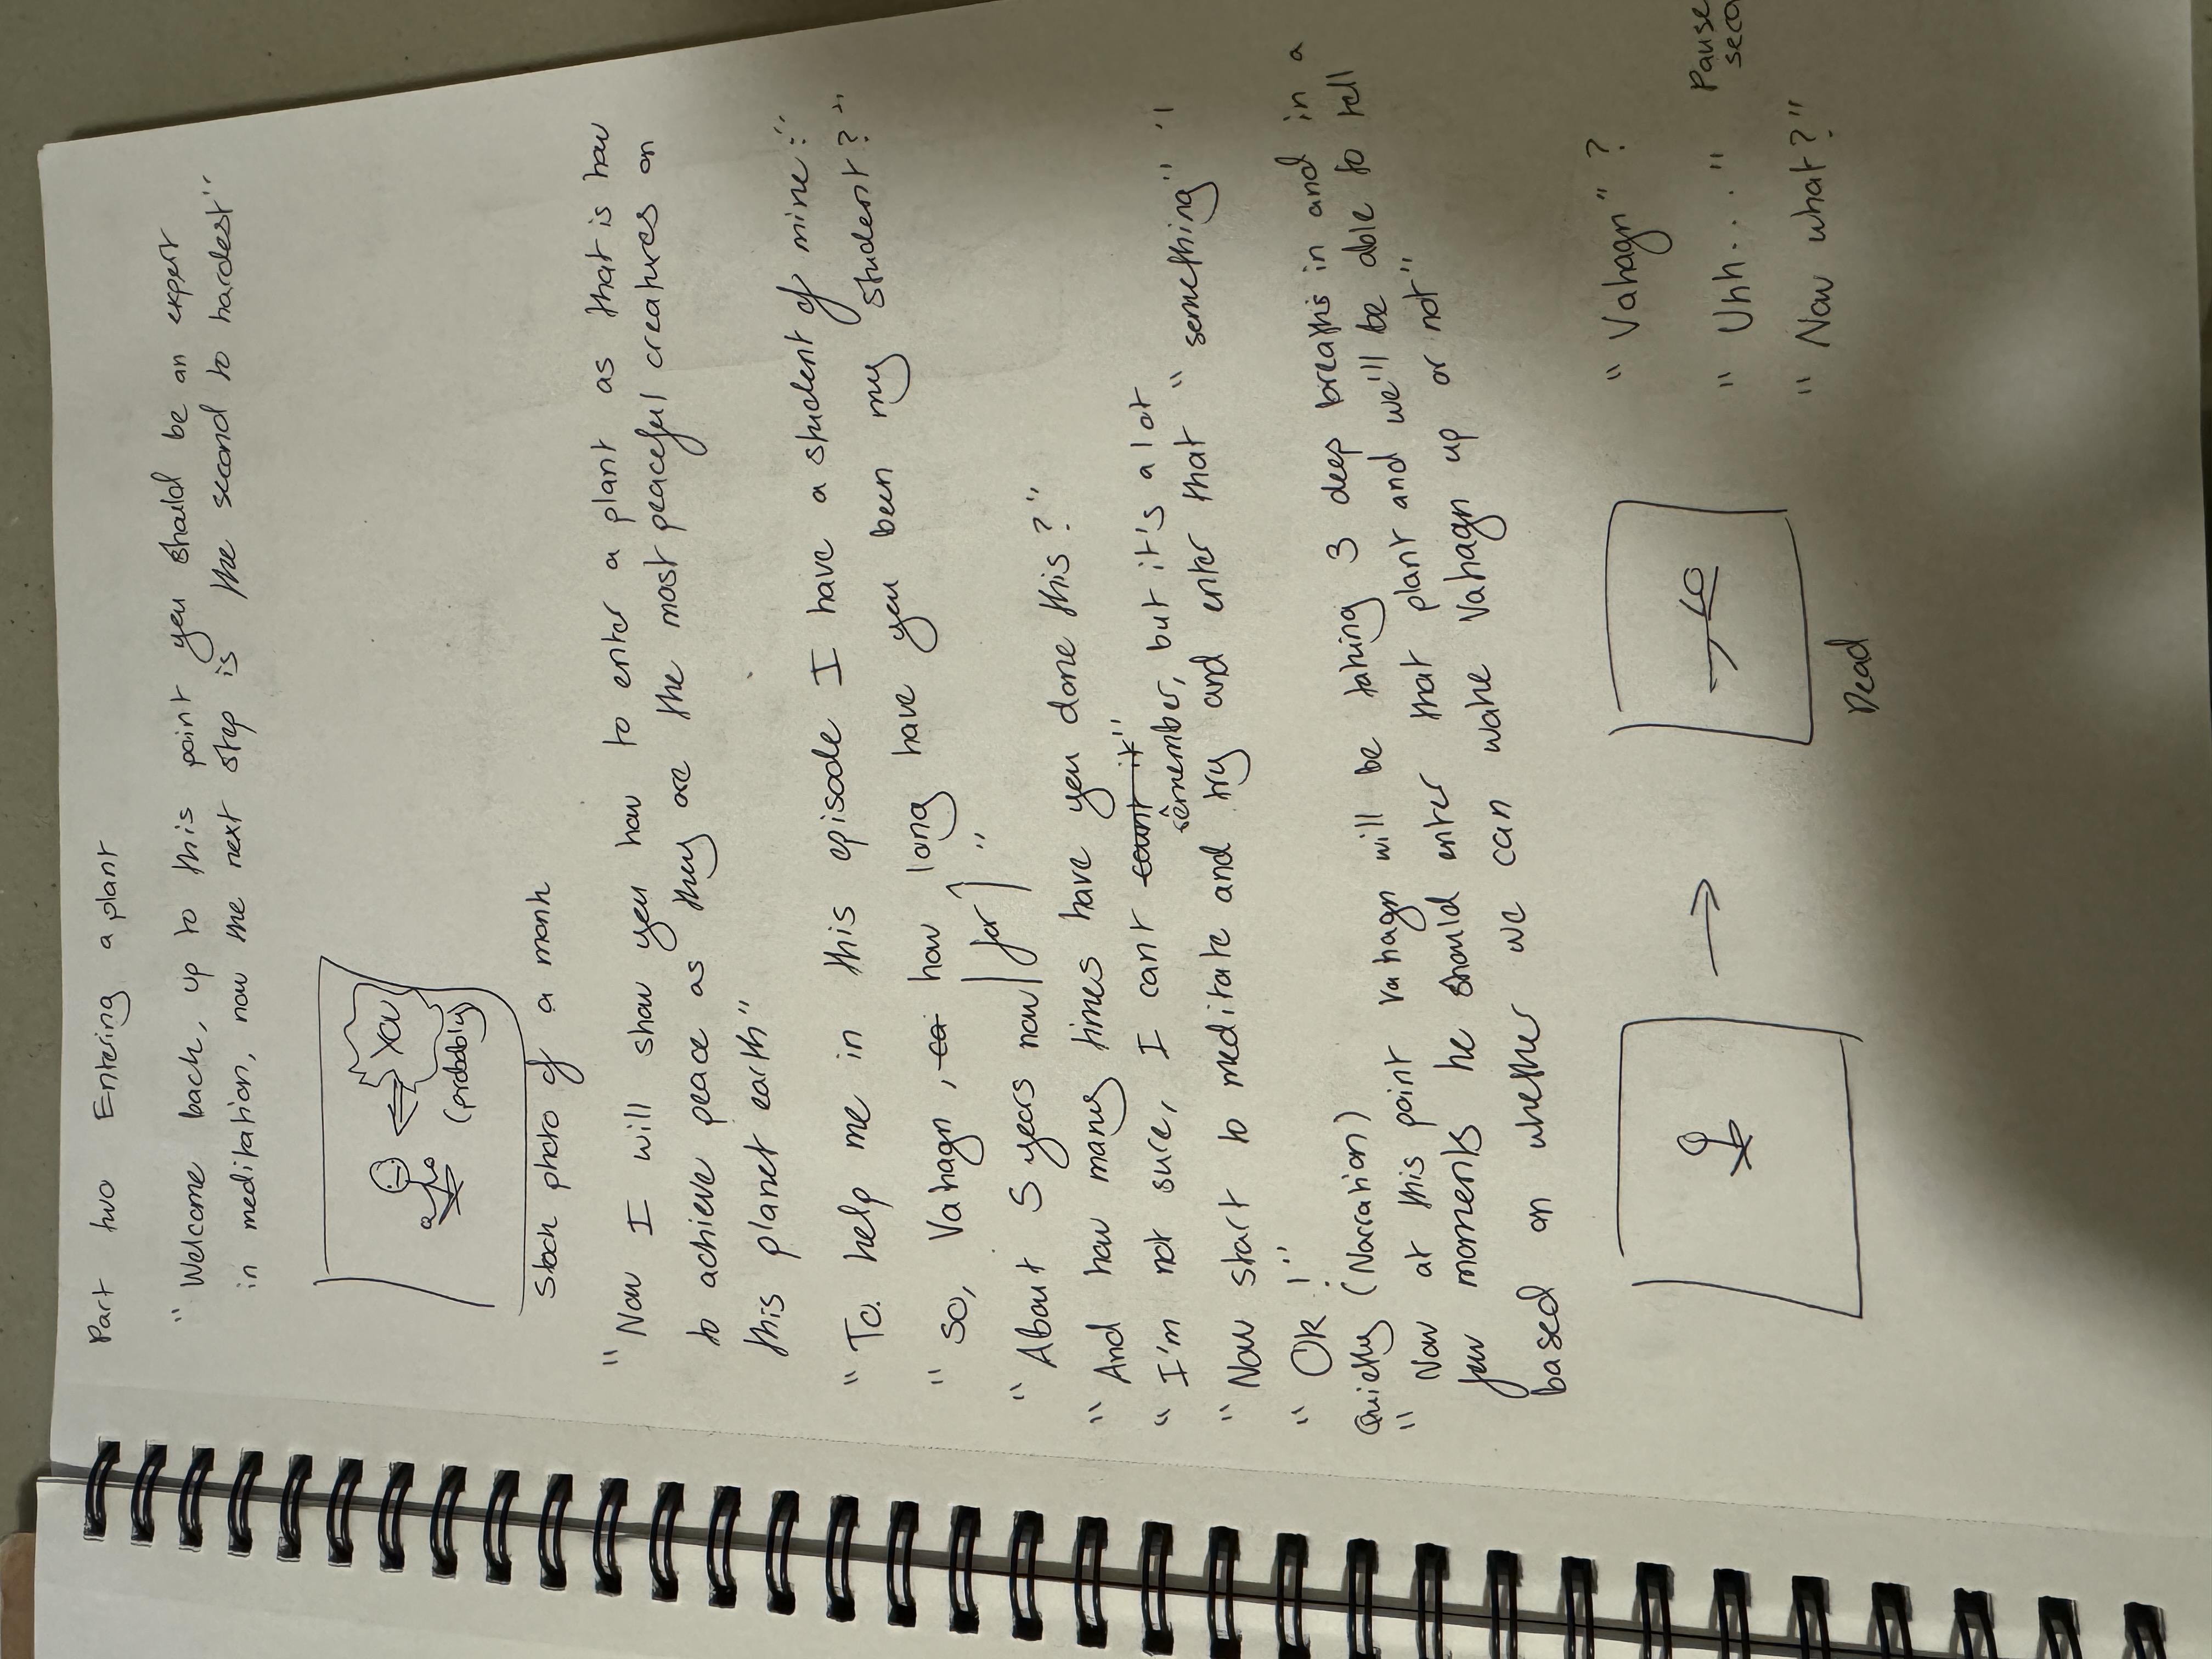 Part two Entering a plant
"Welcome back, up to this point you should be an expert
in meditation, now the next step is the second to hardest"
You
(probably)
Stock photo of a monk
"Now I will show you how to enter a plant as that is how
to achieve peace as they are the most peaceful creatures on
this planet earth"
"To help me in this episode I have a student of mine:"
"so, Vahagn, ca how long have you been my student?"
"About 5 years now for"
"And how many times have you done this?"
"I'm not sure, I cant count it"
remember, but it's a lot
"Now start to meditate and try and enter that "something" "
"Ok!"
Quietly (Narration)
"Now at this point Vahagn will be taking 3 deep breaths in and in a
few moments he should enter that plant and we'll be able to tell
based on whether we can wake Vahagn up or not"
"Vahagn"?
"Uhh...." Pause
seco
"Now what?"
Dead